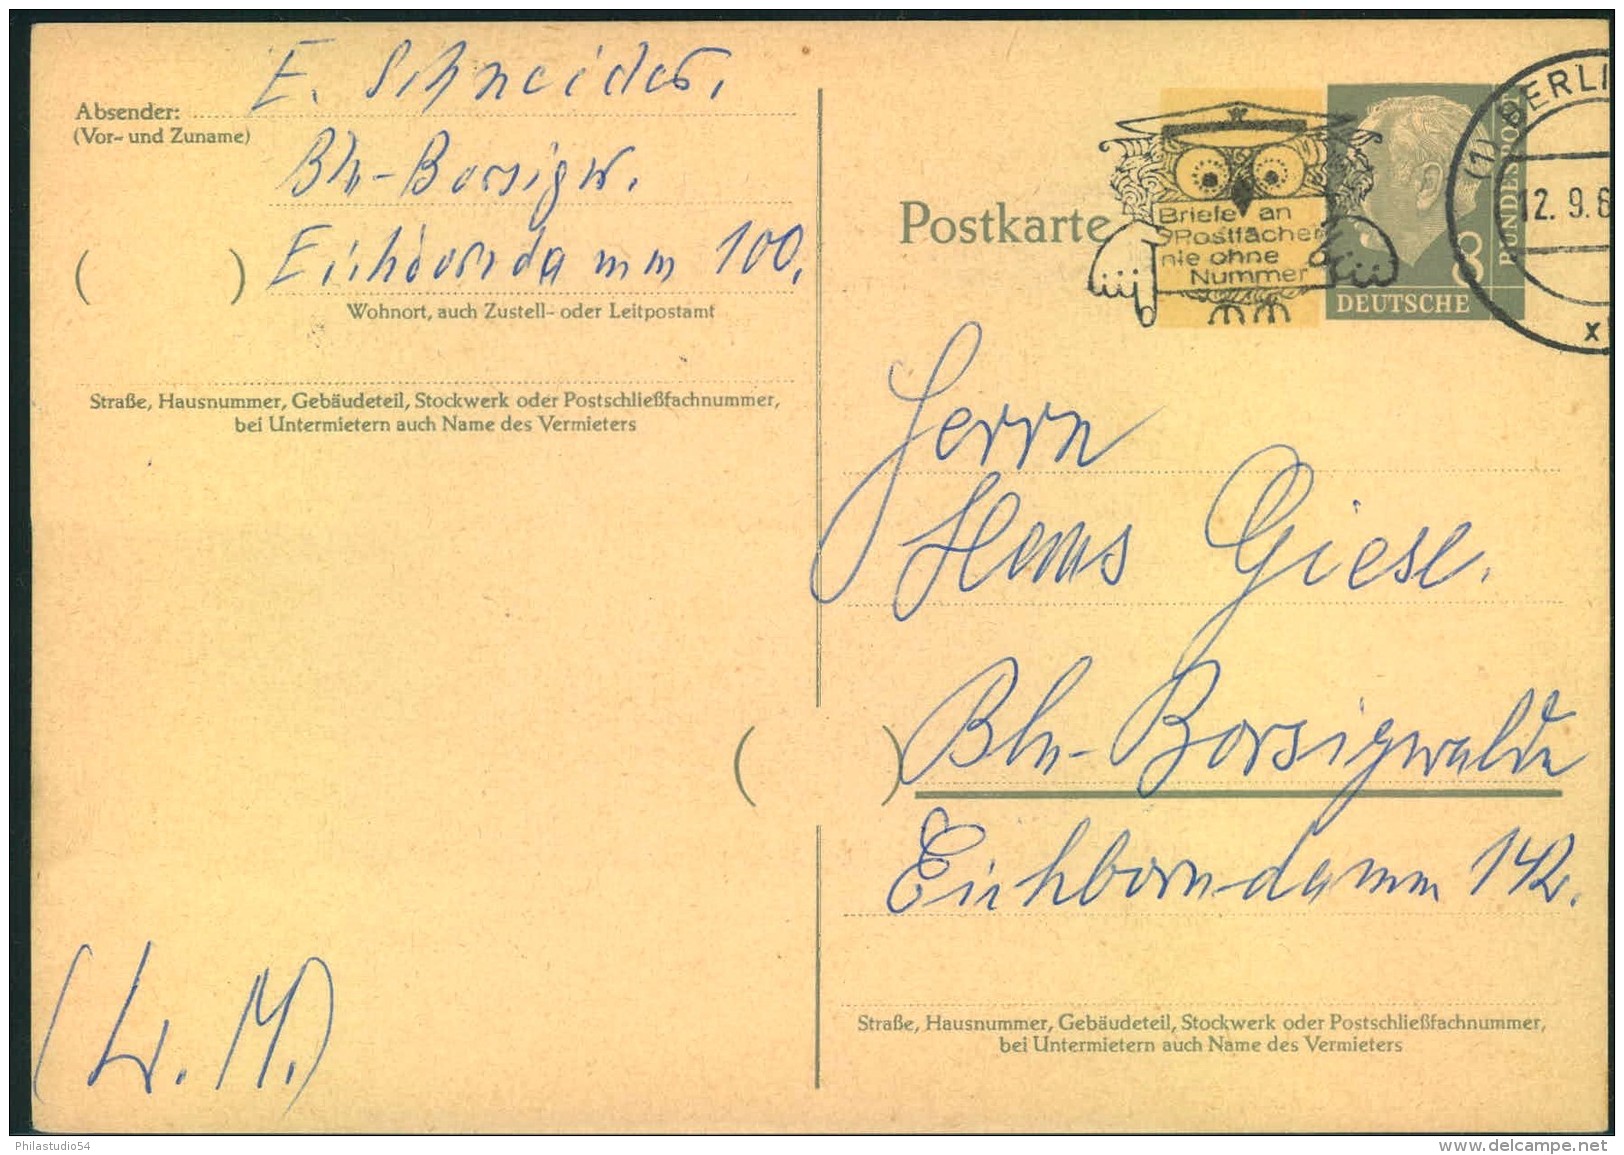 E. Schneider,
Absender:
(Vor- und Zuname)
Bln-Borsigw.
Eichborndamm 100,
( )
Wohnort, auch Zustell- oder Leitpostamt
Straße, Hausnummer, Gebäudeteil, Stockwerk oder Postschließfachnummer,
bei Untermietern auch Name des Vermieters
Postkarte
Briefe an
Postfächer
nie ohne
Nummer
8
DEUTSCHE
BUNDESPOST
(1) BERLI
12. 9. 6
x
Herrn
Hans Giese.
( )
Bln-Borsigwalde
Eichborndamm 142.
Straße, Hausnummer, Gebäudeteil, Stockwerk oder Postschließfachnummer,
bei Untermietern auch Name des Vermieters
(W. M.)
Philastudio54
www.delcampe.net